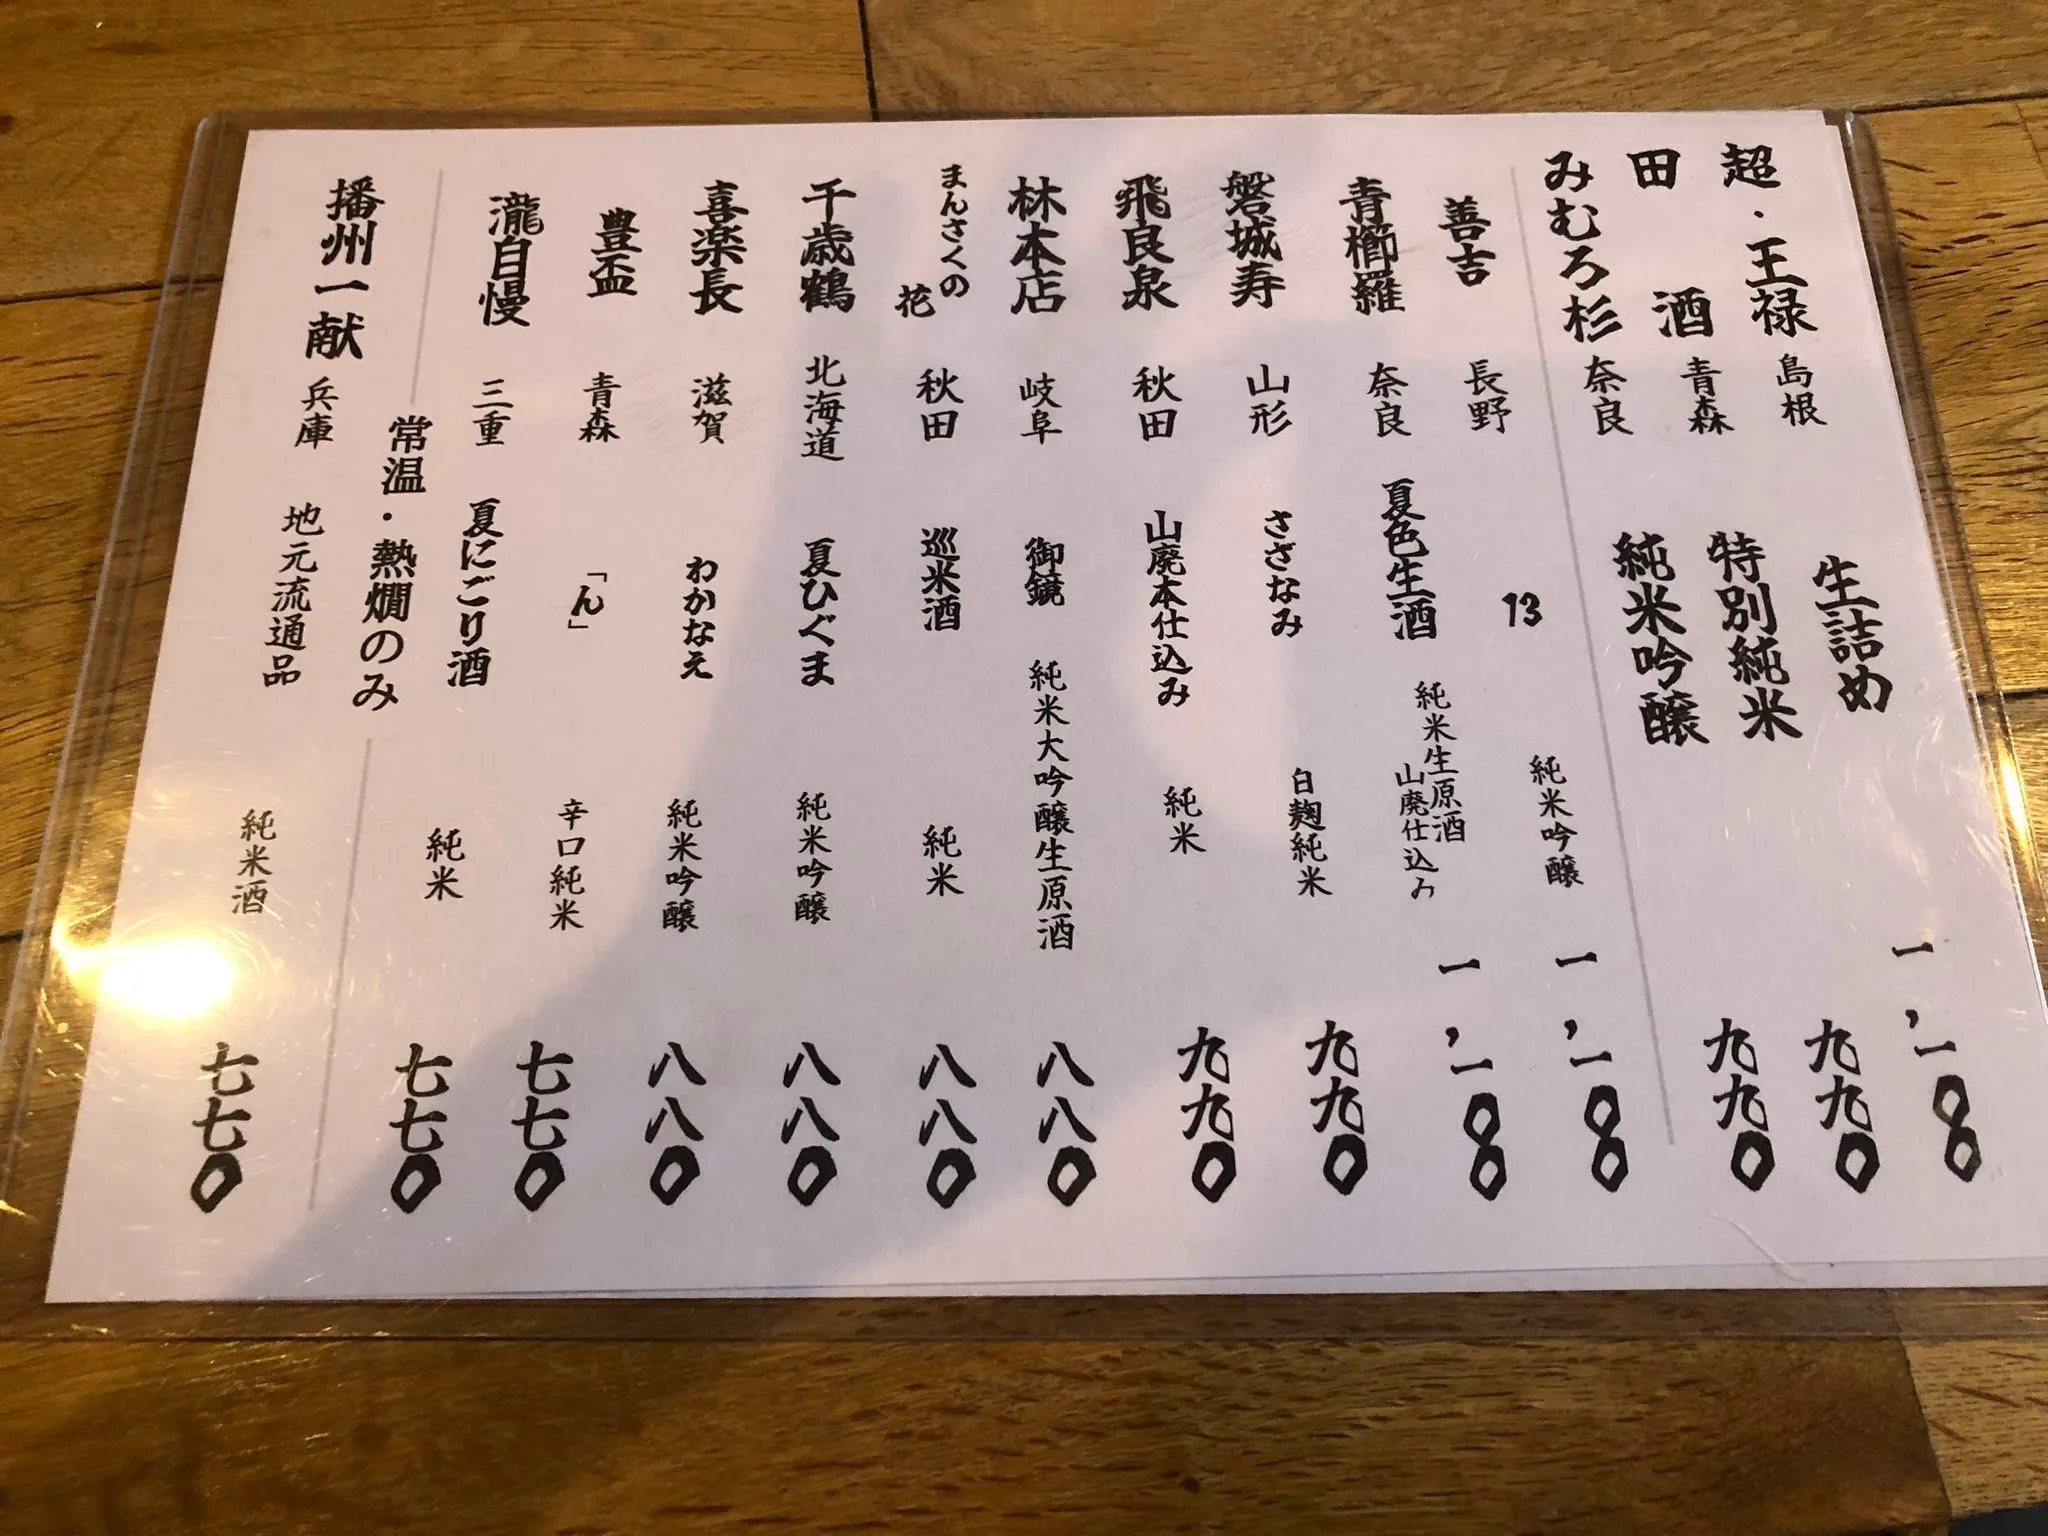 超・王禄 島根 生詰め 一,一〇〇
田酒 青森 特別純米 九九〇
みむろ杉 奈良 純米吟醸 九九〇
善吉 長野 13 純米吟醸 一,一〇〇
青櫛羅 奈良 夏色生酒 純米生原酒 山廃仕込み 一,一〇〇
磐城寿 山形 さざなみ 白麹純米 九九〇
飛良泉 秋田 山廃本仕込み 純米 九九〇
林本店 岐阜 御鏡 純米大吟醸生原酒 八八〇
まんさくの花 秋田 巡米酒 純米 八八〇
千歳鶴 北海道 夏ひぐま 純米吟醸 八八〇
喜楽長 滋賀 わかなえ 純米吟醸 八八〇
豊盃 青森 「ん」 辛口純米 七七〇
瀧自慢 三重 夏にごり酒 純米 七七〇
常温・熱燗のみ
播州一献 兵庫 地元流通品 純米酒 七七〇